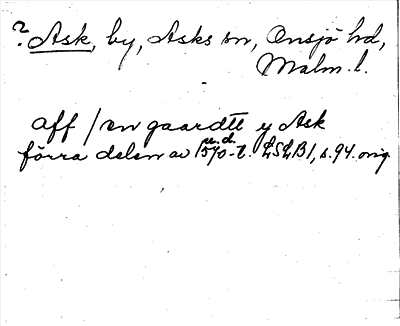 ? Ask, by, Asks sn, Onsjö hd,
Malm. l.
aff / en gaardtt y Ask
u.d.
förra delen av 1570-t. LSLB1, s. 94. orig.